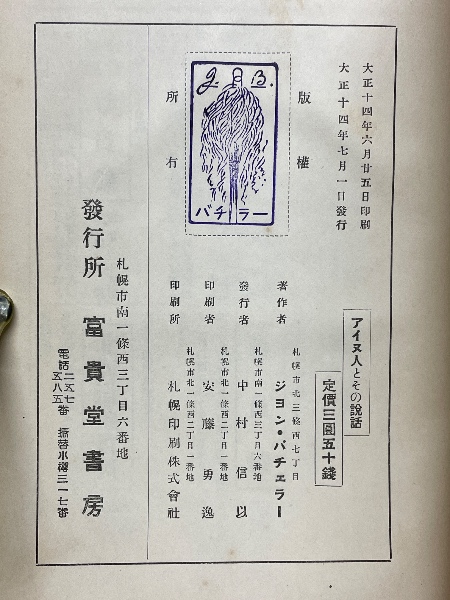 大正十四年六月廿五日印刷
大正十四年七月一日發行
版權
所有
J. B.
バチラー
アイヌ人とその說話
定價三圓五十錢
札幌市北三條西七丁目
著作者 ジヨン・バチェラー
札幌市南一條西三丁目六番地
發行者 中村信以
札幌市北一條西二丁目一番地
印刷者 安藤勇逸
札幌市北一條西二丁目一番地
印刷所 札幌印刷株式會社
札幌市南一條西三丁目六番地
發行所 富貴堂書房
電話 二五七 五八五番 振替小樽三一七番